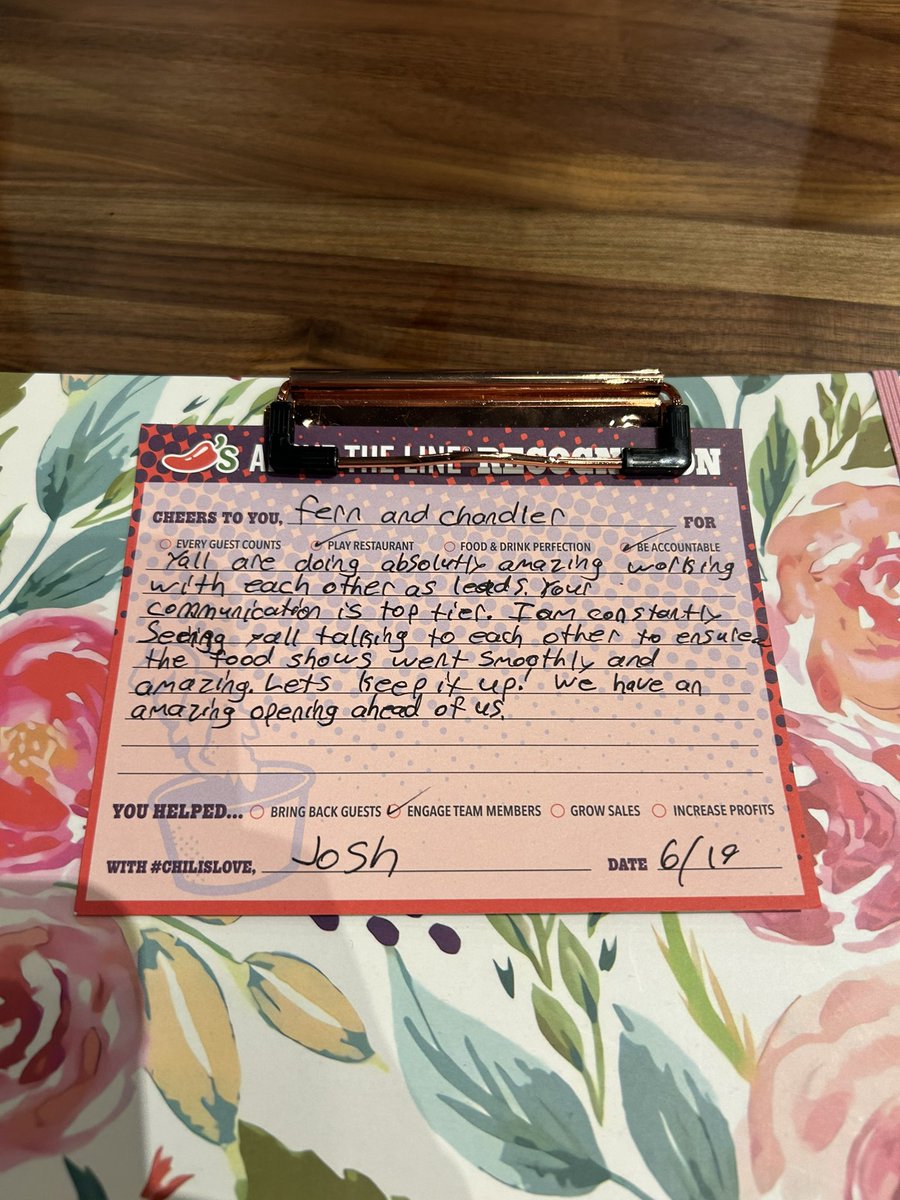 'S A THE LINE RECOGN ON
CHEERS TO YOU, fern and chandler FOR
EVERY GUEST COUNTS PLAY RESTAURANT FOOD & DRINK PERFECTION BE ACCOUNTABLE
Yall are doing absolutly amazing working
with each other as leads. Your
communication is top tier. I am constantly
Seeing yall talking to each other to ensure
the food shows went smoothly and
amazing. Lets keep it up! We have an
amazing opening ahead of us.
YOU HELPED... BRING BACK GUESTS ENGAGE TEAM MEMBERS GROW SALES INCREASE PROFITS
WITH #CHILISLOVE, Josh DATE 6/19